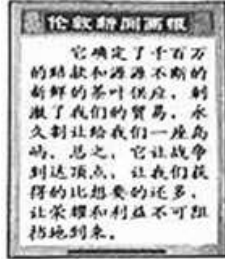 伦敦新闻画报
它确定了千百万
的赔款和源源不断的
新鲜的茶叶供应，刺
激了我们的贸易，永
久割让给我们一座岛
屿。总之，它让战争
到达顶点，让我们获
得的比想要的还多，
让荣耀和利益不可阻
挡地到来。